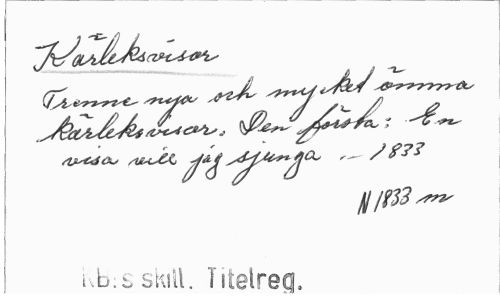 Kärleksvisor
Trenne nya och mycket ömma
kärleksvisor. Den första: En
visa vill jag sjunga .– 1833
N 1833 m
KB:s skill. Titelreg.